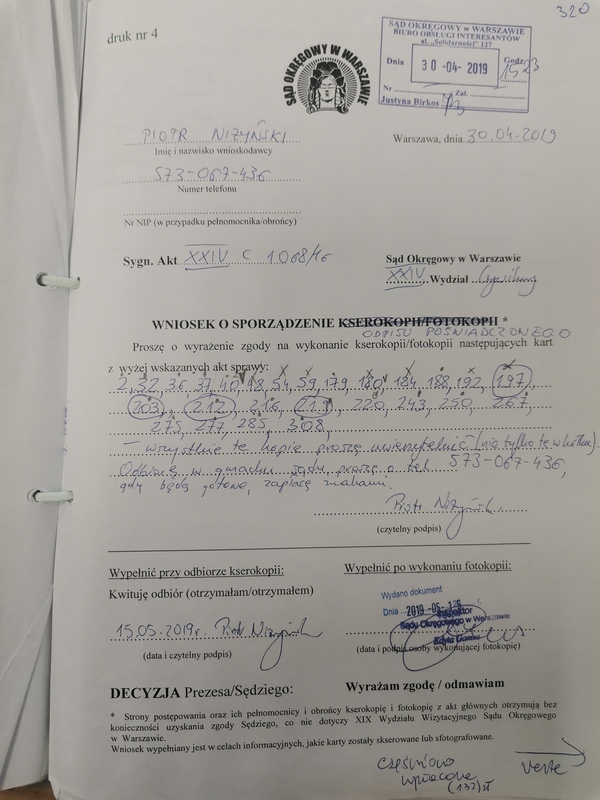 320
druk nr 4
SĄD OKRĘGOWY W WARSZAWIE
SĄD OKRĘGOWY w WARSZAWIE
BIURO OBSŁUGI INTERESANTÓW
al. „Solidarności" 127
Dnia 30 -04- 2019 Godz. 1523
Nr Zał.
Justyna Birkos
PIOTR NIŻYŃSKI
Imię i nazwisko wnioskodawcy
Warszawa, dnia 30.04.2019
573-067-436
Numer telefonu
Nr NIP (w przypadku pełnomocnika/obrońcy)
Sygn. Akt XXIV C 1068/16
Sąd Okręgowy w Warszawie
XXIV Wydział Cywilny
WNIOSEK O SPORZĄDZENIE KSEROKOPII/FOTOKOPII *
ODPISU POŚWIADCZONEGO
Proszę o wyrażenie zgody na wykonanie kserokopii/fotokopii następujących kart
z wyżej wskazanych akt sprawy:
2, 32, 36, 37, 40, 48, 54, 59, 179, 180, 184, 188, 192, 197,
203, 212, 216, 219, 220, 243, 250, 267,
275, 277, 285, 308,
– wszystkie te kopie proszę uwierzytelnić (nie tylko te w kółku).
Odbiorę w gmachu sądu, proszę o tel. 573-067-436,
gdy będą gotowe, zapłacę znakami.
Piotr Niżyński
(czytelny podpis)
Wypełnić przy odbiorze kserokopii:
Wypełnić po wykonaniu fotokopii:
Kwituję odbiór (otrzymałam/otrzymałem)
Wydano dokument
Dnia 2019 -05- 1
Inspektor
Sądu Okręgowego w Warszawie
15.05.2019r. Piotr Niżyński
(data i czytelny podpis)
(data i podpis osoby wykonującej fotokopię)
DECYZJA Prezesa/Sędziego:
Wyrażam zgodę / odmawiam
* Strony postępowania oraz ich pełnomocnicy i obrońcy kserokopię i fotokopię z akt głównych otrzymują bez
konieczności uzyskania zgody Sędziego, co nie dotyczy XIX Wydziału Wizytacyjnego Sądu Okręgowego
w Warszawie.
Wniosek wypełniany jest w celach informacyjnych, jakie karty zostały skserowane lub sfotografowane.
częściowo
opłacone
(132) zł
verte